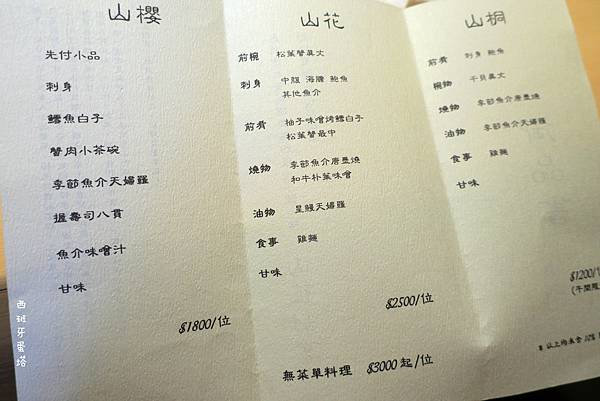 山櫻
先付小品
刺身
鱈魚白子
蟹肉小茶碗
季節魚介天婦羅
握壽司八貫
魚介味噌汁
甘味
$1800/位
山花
前椀 松葉蟹真丈
刺身 中腹 海膽 鮑魚
其他魚介
前肴 柚子味噌烤鱈白子
松葉蟹最中
燒物 季節魚介唐墨燒
和牛朴葉味噌
油物 星鰻天婦羅
食事 雞麵
甘味
$2500/位
無菜單料理 $3000起/位
山桐
前肴 刺身 鮑魚
椀物 干貝真丈
燒物 季節魚介唐墨燒
油物 季節魚介天婦羅
食事 雞麵
甘味
$1200/
(午間限
※以上均未含10%
西班牙蛋塔